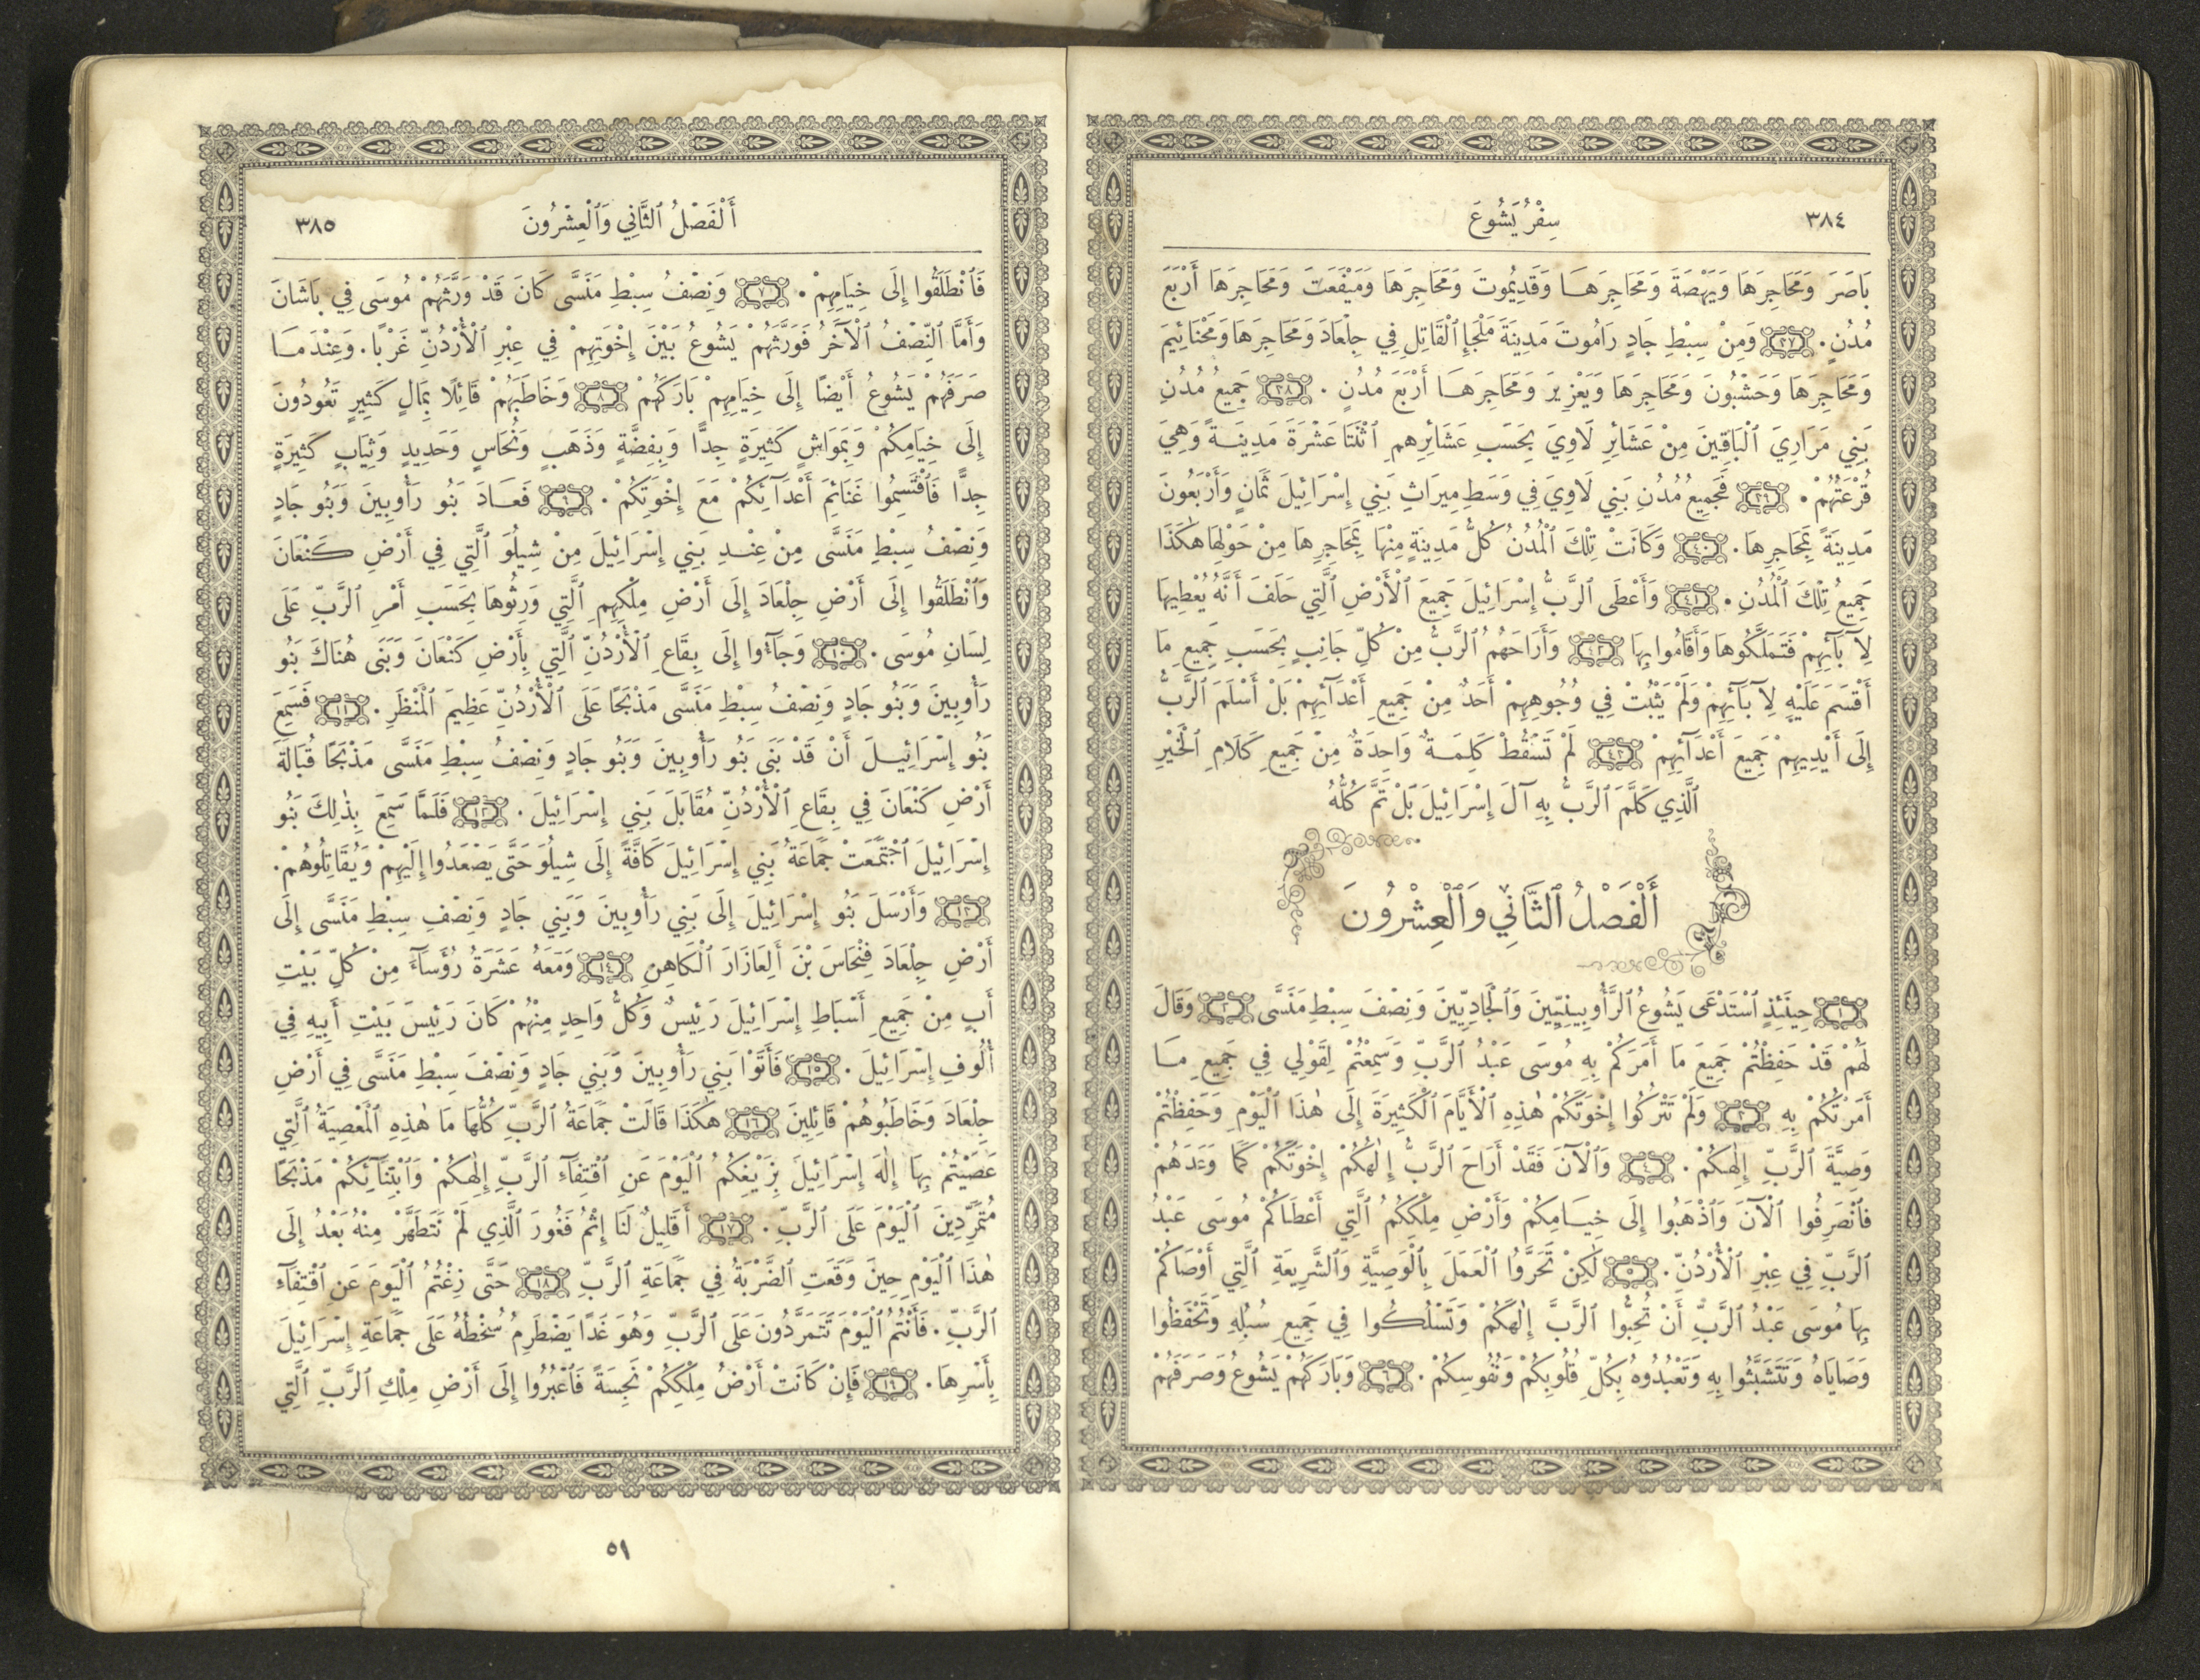 ٣٨٤
سِفْرُ يَشُوعَ
بَاصَرَ وَمَحَاجِرَهَا وَيَهْصَةَ وَمَحَاجِرَهَا وَقَدِيمُوتَ وَمَحَاجِرَهَا وَمَيْفَعَتَ وَمَحَاجِرَهَا أَرْبَعَ
مُدُنٍ. ٣٧ وَمِنْ سِبْطِ جَادٍ رَامُوتَ مَدِينَةَ مَلْجَإِ ٱلْقَاتِلِ فِي جِلْعَادَ وَمَحَاجِرَهَا وَمَحْنَائِيمَ
وَمَحَاجِرَهَا وَحَشْبُونَ وَمَحَاجِرَهَا وَيَعْزِيرَ وَمَحَاجِرَهَا أَرْبَعَ مُدُنٍ. ٣٨ جَمِيعُ مُدُنِ
بَنِي مَرَارِيَ ٱلْبَاقِينَ مِنْ عَشَائِرِ لَاوِيَ بِحَسَبِ عَشَائِرِهِمِ ٱثْنَتَا عَشْرَةَ مَدِينَةً وَهِيَ
قُرْعَتُهُمْ. ٣٩ فَجَمِيعُ مُدُنِ بَنِي لَاوِيَ فِي وَسَطِ مِيرَاثِ بَنِي إِسْرَائِيلَ ثَمَانٍ وَأَرْبَعُونَ
مَدِينَةً بِمَحَاجِرِهَا. ٤٠ وَكَانَتْ تِلْكَ ٱلْمُدُنُ كُلُّ مَدِينَةٍ مِنْهَا بِمَحَاجِرِهَا مِنْ حَوْلِهَا هٰكَذَا
جَمِيعُ تِلْكَ ٱلْمُدُنِ. ٤١ وَأَعْطَى ٱلرَّبُّ إِسْرَائِيلَ جَمِيعَ ٱلْأَرْضِ ٱلَّتِي حَلَفَ أَنَّهُ يُعْطِيهَا
لِآبَآئِهِمْ فَتَمَلَّكُوهَا وَأَقَامُوا بِهَا ٤٢ وَأَرَاحَهُمُ ٱلرَّبُّ مِنْ كُلِّ جَانِبٍ بِحَسَبِ جَمِيعِ مَا
أَقْسَمَ عَلَيْهِ لِآبَآئِهِمْ وَلَمْ يَثْبُتْ فِي وُجُوهِهِمْ أَحَدٌ مِنْ جَمِيعِ أَعْدَآئِهِمْ بَلْ أَسْلَمَ ٱلرَّبُّ
إِلَى أَيْدِيهِمْ جَمِيعَ أَعْدَآئِهِمْ ٤٣ لَمْ تَسْقُطْ كَلِمَةٌ وَاحِدَةٌ مِنْ جَمِيعِ كَلَامِ ٱلْخَيْرِ
ٱلَّذِي كَلَّمَ ٱلرَّبُّ بِهِ آلَ إِسْرَائِيلَ بَلْ تَمَّ كُلُّهُ
أَلْفَصْلُ ٱلثَّانِي وَٱلْعِشْرُونَ
١ حِينَئِذٍ ٱسْتَدْعَى يَشُوعُ ٱلرَّأُوبِينِيِّينَ وَٱلْجَادِيِّينَ وَنِصْفَ سِبْطِ مَنَسَّى ٢ وَقَالَ
لَهُمْ قَدْ حَفِظْتُمْ جَمِيعَ مَا أَمَرَكُمْ بِهِ مُوسَى عَبْدُ ٱلرَّبِّ وَسَمِعْتُمْ لِقَوْلِي فِي جَمِيعِ مَا
أَمَرْتُكُمْ بِهِ ٣ وَلَمْ تَتْرُكُوا إِخْوَتَكُمْ هٰذِهِ ٱلْأَيَّامَ ٱلْكَثِيرَةَ إِلَى هٰذَا ٱلْيَوْمِ وَحَفِظْتُمْ
وَصِيَّةَ ٱلرَّبِّ إِلٰهِكُمْ. ٤ وَٱلْآنَ فَقَدْ أَرَاحَ ٱلرَّبُّ إِلٰهُكُمْ إِخْوَتَكُمْ كَمَا وَعَدَهُمْ
فَٱنْصَرِفُوا ٱلْآنَ وَٱذْهَبُوا إِلَى خِيَامِكُمْ وَأَرْضِ مِلْكِكُمُ ٱلَّتِي أَعْطَاكُمْ مُوسَى عَبْدُ
ٱلرَّبِّ فِي عِبْرِ ٱلْأُرْدُنِّ. ٥ لٰكِنْ تَحَرَّوُا ٱلْعَمَلَ بِٱلْوَصِيَّةِ وَٱلشَّرِيعَةِ ٱلَّتِي أَوْصَاكُمْ
بِهَا مُوسَى عَبْدُ ٱلرَّبِّ أَنْ تُحِبُّوا ٱلرَّبَّ إِلٰهَكُمْ وَتَسْلُكُوا فِي جَمِيعِ سُبُلِهِ وَتَحْفَظُوا
وَصَايَاهُ وَتَتَشَبَّثُوا بِهِ وَتَعْبُدُوهُ بِكُلِّ قُلُوبِكُمْ وَنُفُوسِكُمْ. ٦ وَبَارَكَهُمْ يَشُوعُ وَصَرَفَهُمْ
أَلْفَصْلُ ٱلثَّانِي وَٱلْعِشْرُونَ
٣٨٥
فَٱنْطَلَقُوا إِلَى خِيَامِهِمْ. ٧ وَنِصْفُ سِبْطِ مَنَسَّى كَانَ قَدْ وَرَّثَهُمْ مُوسَى فِي بَاشَانَ
وَأَمَّا ٱلنِّصْفُ ٱلْآخَرُ فَوَرَّثَهُمْ يَشُوعُ بَيْنَ إِخْوَتِهِمْ فِي عِبْرِ ٱلْأُرْدُنِّ غَرْبًا. وَعِنْدَمَا
صَرَفَهُمْ يَشُوعُ أَيْضًا إِلَى خِيَامِهِمْ بَارَكَهُمْ ٨ وَخَاطَبَهُمْ قَائِلًا بِمَالٍ كَثِيرٍ تَعُودُونَ
إِلَى خِيَامِكُمْ وَبِمَوَاشٍ كَثِيرَةٍ جِدًّا وَبِفِضَّةٍ وَذَهَبٍ وَنُحَاسٍ وَحَدِيدٍ وَثِيَابٍ كَثِيرَةٍ
جِدًّا فَٱقْتَسِمُوا غَنَائِمَ أَعْدَآئِكُمْ مَعَ إِخْوَتِكُمْ. ٩ فَعَادَ بَنُو رَأُوبِينَ وَبَنُو جَادٍ
وَنِصْفُ سِبْطِ مَنَسَّى مِنْ عِنْدِ بَنِي إِسْرَائِيلَ مِنْ شِيلُوَ ٱلَّتِي فِي أَرْضِ كَنْعَانَ
وَٱنْطَلَقُوا إِلَى أَرْضِ جِلْعَادَ إِلَى أَرْضِ مِلْكِهِمِ ٱلَّتِي وَرِثُوهَا بِحَسَبِ أَمْرِ ٱلرَّبِّ عَلَى
لِسَانِ مُوسَى. ١٠ وَجَآءُوا إِلَى بِقَاعِ ٱلْأُرْدُنِّ ٱلَّتِي بِأَرْضِ كَنْعَانَ وَبَنَى هُنَاكَ بَنُو
رَأُوبِينَ وَبَنُو جَادٍ وَنِصْفُ سِبْطِ مَنَسَّى مَذْبَحًا عَلَى ٱلْأُرْدُنِّ عَظِيمَ ٱلْمَنْظَرِ. ١١ فَسَمِعَ
بَنُو إِسْرَائِيلَ أَنْ قَدْ بَنَى بَنُو رَأُوبِينَ وَبَنُو جَادٍ وَنِصْفُ سِبْطِ مَنَسَّى مَذْبَحًا قُبَالَةَ
أَرْضِ كَنْعَانَ فِي بِقَاعِ ٱلْأُرْدُنِّ مُقَابَلَ بَنِي إِسْرَائِيلَ. ١٢ فَلَمَّا سَمِعَ بِذٰلِكَ بَنُو
إِسْرَائِيلَ ٱجْتَمَعَتْ جَمَاعَةُ بَنِي إِسْرَائِيلَ كَافَّةً إِلَى شِيلُوَ حَتَّى يَصْعَدُوا إِلَيْهِمْ وَيُقَاتِلُوهُمْ.
١٣ وَأَرْسَلَ بَنُو إِسْرَائِيلَ إِلَى بَنِي رَأُوبِينَ وَبَنِي جَادٍ وَنِصْفِ سِبْطِ مَنَسَّى إِلَى
أَرْضِ جِلْعَادَ فِنْحَاسَ بْنَ أَلِعَازَارَ ٱلْكَاهِنِ ١٤ وَمَعَهُ عَشَرَةُ رُؤَسَآءَ مِنْ كُلِّ بَيْتِ
أَبٍ مِنْ جَمِيعِ أَسْبَاطِ إِسْرَائِيلَ رَئِيسٌ وَكُلُّ وَاحِدٍ مِنْهُمْ كَانَ رَئِيسَ بَيْتِ أَبِيهِ فِي
أُلُوفِ إِسْرَائِيلَ. ١٥ فَأَتَوْا بَنِي رَأُوبِينَ وَبَنِي جَادٍ وَنِصْفَ سِبْطِ مَنَسَّى فِي أَرْضِ
جِلْعَادَ وَخَاطَبُوهُمْ قَائِلِينَ ١٦ هٰكَذَا قَالَتْ جَمَاعَةُ ٱلرَّبِّ كُلُّهَا مَا هٰذِهِ ٱلْمَعْصِيَةُ ٱلَّتِي
عَصَيْتُمْ بِهَا إِلٰهَ إِسْرَائِيلَ بِزَيْغِكُمُ ٱلْيَوْمَ عَنِ ٱقْتِفَآءِ ٱلرَّبِّ إِلٰهِكُمْ وَٱبْتِنَآئِكُمْ مَذْبَحًا
مُتَمَرِّدِينَ ٱلْيَوْمَ عَلَى ٱلرَّبِّ. ١٧ أَقَلِيلٌ لَنَا إِثْمُ فَغُورَ ٱلَّذِي لَمْ نَتَطَهَّرْ مِنْهُ بَعْدُ إِلَى
هٰذَا ٱلْيَوْمِ حِينَ وَقَعَتِ ٱلضَّرْبَةُ فِي جَمَاعَةِ ٱلرَّبِّ ١٨ حَتَّى زِغْتُمُ ٱلْيَوْمَ عَنِ ٱقْتِفَآءِ
ٱلرَّبِّ. فَأَنْتُمُ ٱلْيَوْمَ تَتَمَرَّدُونَ عَلَى ٱلرَّبِّ وَهُوَ غَدًا يَضْطَرِمُ سُخْطُهُ عَلَى جَمَاعَةِ إِسْرَائِيلَ
بِأَسْرِهَا. ١٩ فَإِنْ كَانَتْ أَرْضُ مِلْكِكُمْ نَجِسَةً فَٱعْبُرُوا إِلَى أَرْضِ مِلْكِ ٱلرَّبِّ ٱلَّتِي
٥١